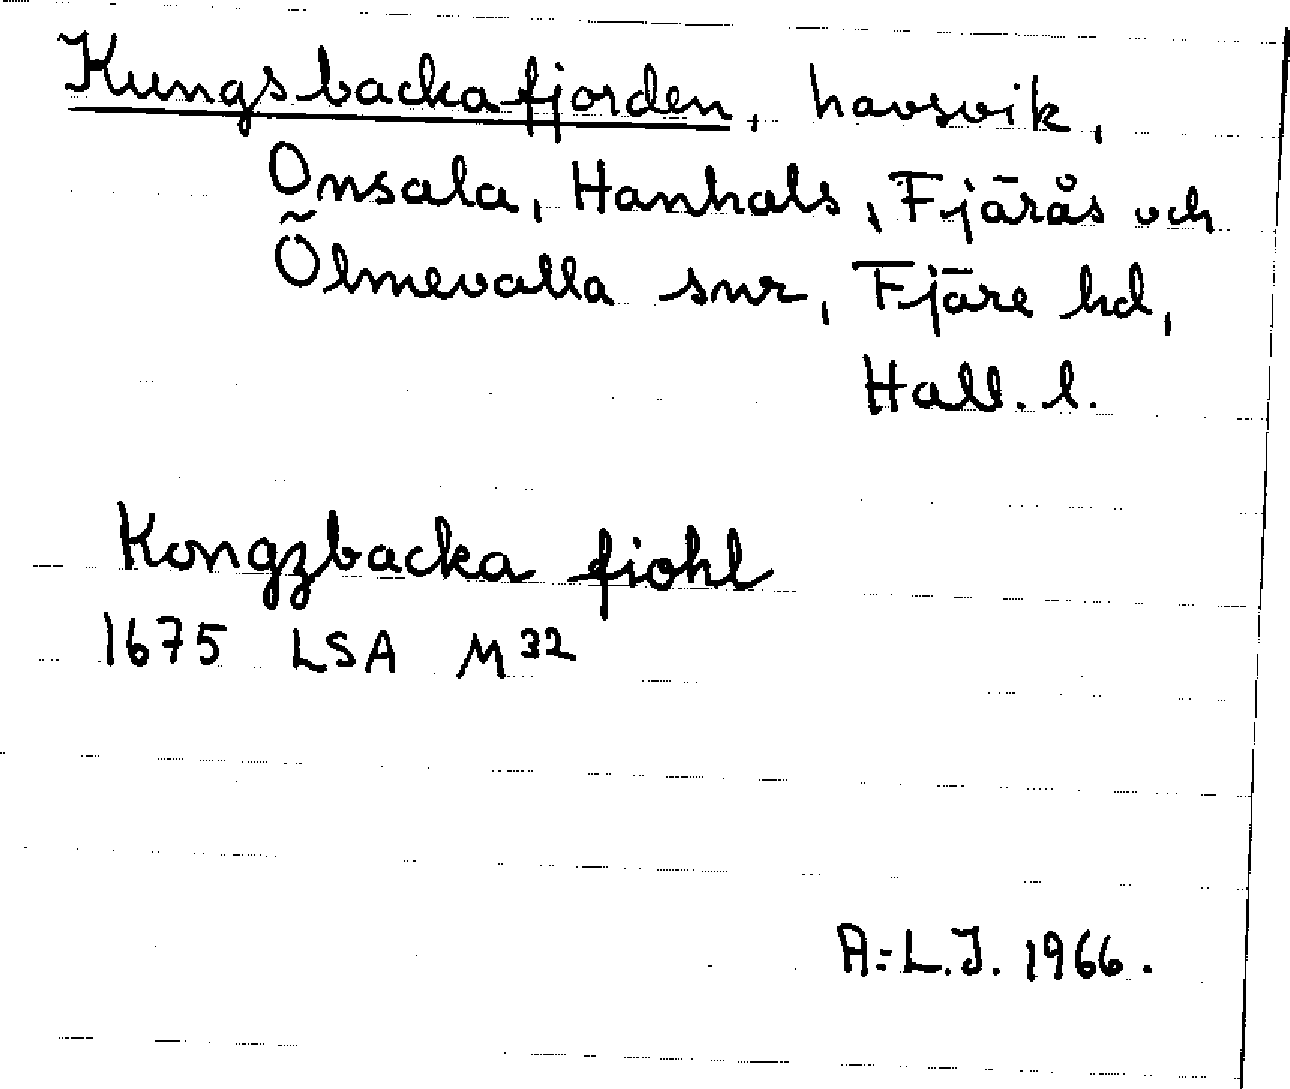 Kungsbackafjorden, havsvik,
Onsala, Hanhals, Fjärås och
Ölmevalla snr, Fjäre hd,
Hall. l.
Kongzbacka fiohl
1675 LSA M 32
A.-L.J. 1966.